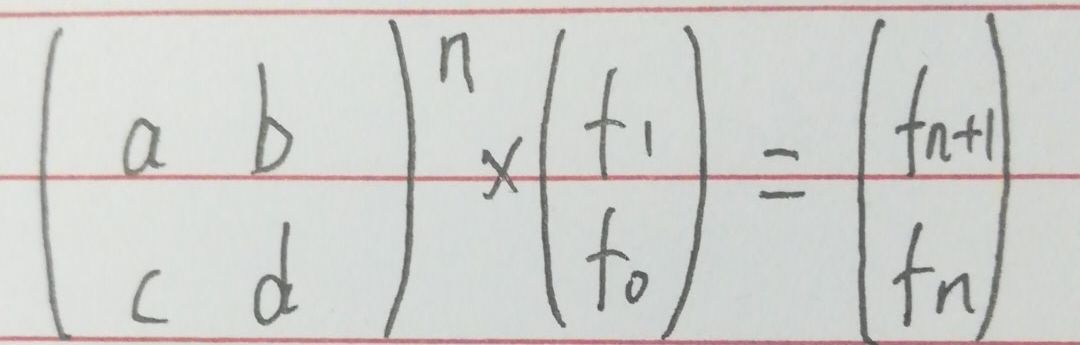 (a b
c d)^n × (f1
f0) = (fn+1
fn)